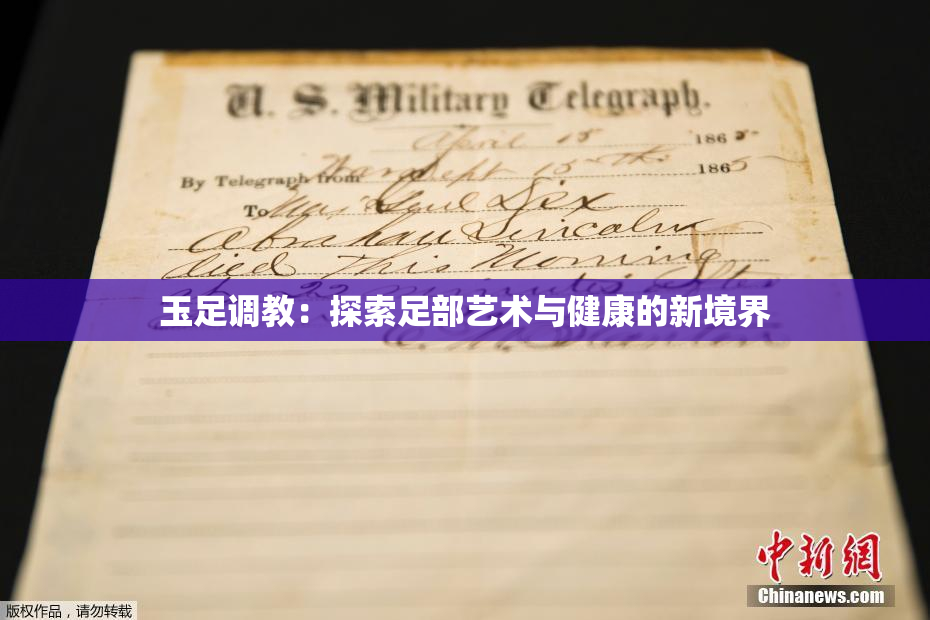 U. S. Military Telegraph.
April 15 1865
By Telegraph from War Dept 15th 1865
To Maj Genl Dix
Abraham Lincoln
died This Morning
at 22 minutes after
玉足调教：探索足部艺术与健康的新境界
中新網
Chinanews.com
版权作品，请勿转载